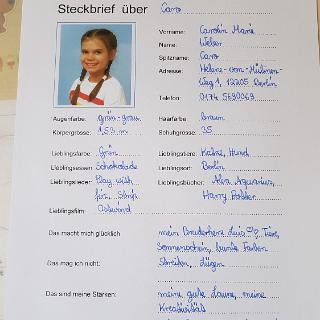 Steckbrief über Caro
Vorname: Carolin Marie
Name: Weber
Spitzname: Caro
Adresse: Helene-von-Mülinen
Weg 1, 12205 Berlin
Telefon: 0174 5690069
Augenfarbe: grün-grau
Haarfarbe: braun
Körpergrösse: 1,53 m
Schuhgrösse: 35
Lieblingsfarbe: Grün
Lieblingstiere: Katze, Hund
Lieblingsessen: Schokolade
Lieblingsort: Berlin
Lieblingslieder: Play with
Lieblingsbücher: Alea Aquarius,
fire, Sam
Harry Potter
Lieblingsfilm: Ostwind
Das macht mich glücklich: mein Bruderherz Luis, Tiere,
Sonnenschein, bunte Farben
Das mag ich nicht: Streiten, Lügen
Das sind meine Stärken: meine gute Laune, meine
Kreativität